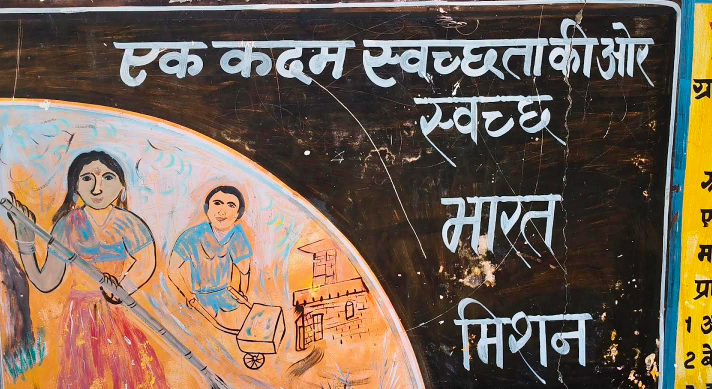 एक कदम स्वच्छता की ओर
स्वच्छ
भारत
मिशन
ग्र
ए
म
प्रा
1 अ
2 बे